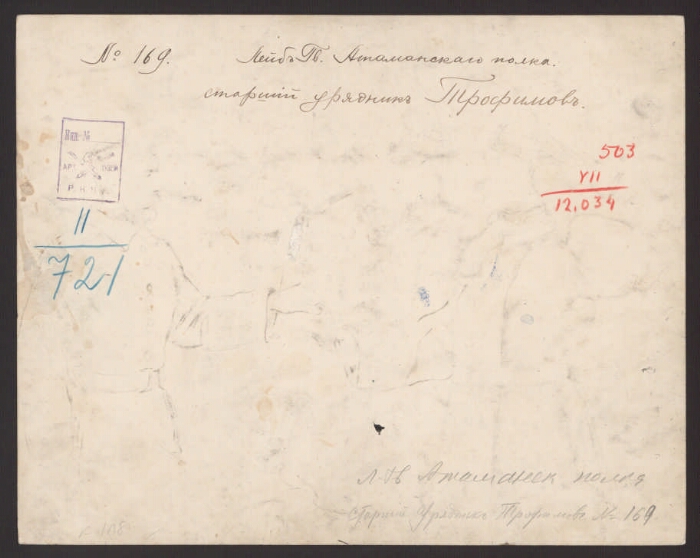 № 169. Лейбъ Гв. Атаманскаго полка.
старшій урядникъ Трофимовъ.
503
VII
12,034
Инв. №
II
721
Л-Гв Атаманск полка
Старший Урядникъ Трофимовъ № 169.